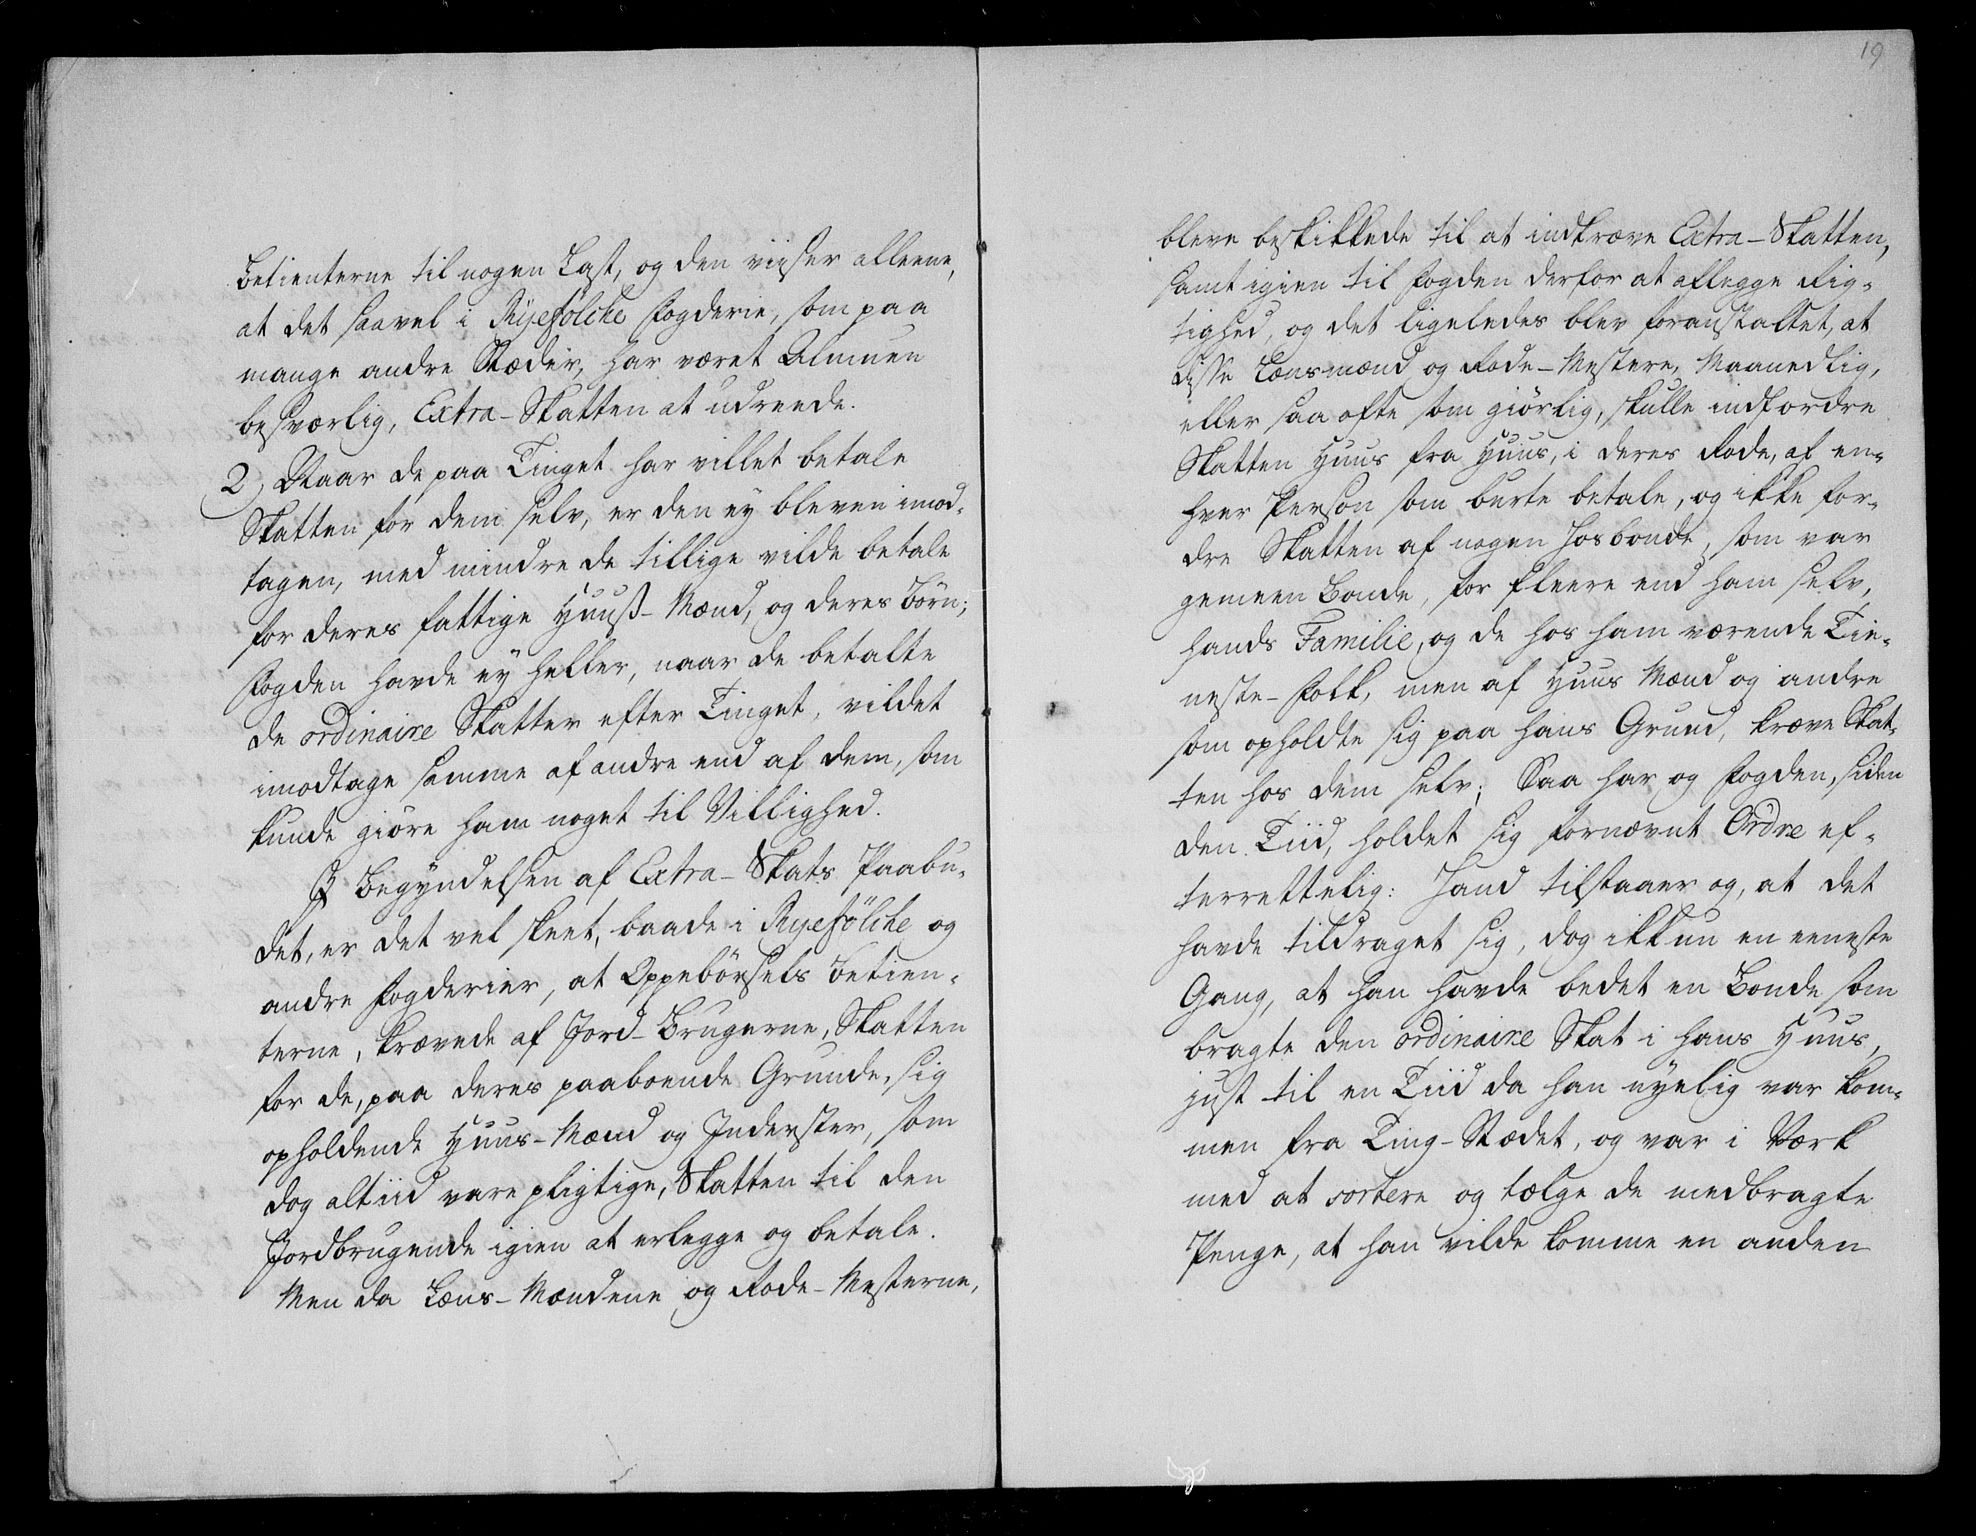 betienterne til nogen Last, og den viiser alleene,
at det saavel i Ryefölche Fogderie, som paa
mange andre Stæder, har været Almuen
besværlig, Extra-Skatten at udreede.
2) Naar de paa Tinget har villet betale
Skatten for dem selv, er den ey bleven imod-
tagen, med mindre de tillige vilde betale
for deres fattige Huuß-Mænd, og deres Börn;
Fogden havde ey heller, naar de betalte
de ordinaire Skatter efter Tinget, vildet
imodtage samme af andre end af dem, som
kunde giöre ham noget til Villighed.
I Begyndelsen af Extra-Skats Paabu-
det, er det vel skeet, baade i Ryefölche og
andre Fogderier, at Oppebörsels betien-
terne, krævede af Jord-Brugerne, Skatten
for de, paa deres paaboende Grunde, sig
opholdende Huus-Mænd og Inderster, som
dog altiid vare pligtige, Skatten til den
Jordbrugende igien at erlegge og betale.
Men da Læns-Mændene og Rode-Mesterne,
19
bleve beskikkede til at indkræve Extra-Skatten,
samt igien til Fogden derfor at aflegge Rig-
tighed, og det ligeledes blev foranstaltet, at
disse Lænsmænd og Rode-Mestere, Maanedlig,
eller saa ofte som giörlig, skulle indfordre
Skatten Huus fra Huus, i deres Rode, af en-
hver Person som burte betale, og ikke for-
dre Skatten af nogen Hosbonde, som var
gemeen Bonde, for fleere end ham selv,
hands Familie, og de hos ham værende Tie-
neste-Folk, men af Huus Mænd og andre
som opholdte sig paa hans Grund, kræve Skat-
ten hos dem selv; Saa har og Fogden, siden
den Tiid, holdet sig fornævnt Ordre ef-
terrettelig: Hand tilstaaer og, at det
havde tildraget sig, dog ikkun en eeneste
Gang, at han havde bedet en Bonde som
bragte den ordinaire Skat i hans Huus,
just til en Tiid da han nyelig var kom-
men fra Ting-Stædet, og var i Værk
med at sortere og tælge de medbragte
Penge, at han vilde komme en anden